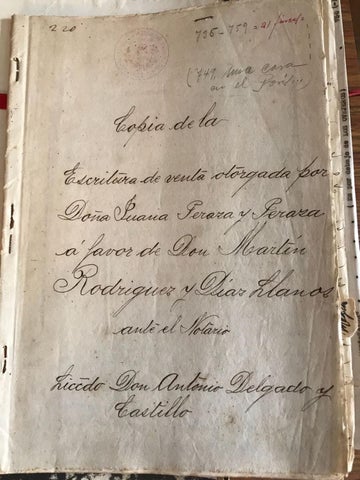 220
736-759
(749 una casa
en el
Copia de la
Escritura de venta otorgada por
Doña Juana Peraza y Peraza
á favor de Don Martín
Rodriguez y Diaz Llanos
ante el Notario
Liccdo Don Antonio Delgado y
Castillo